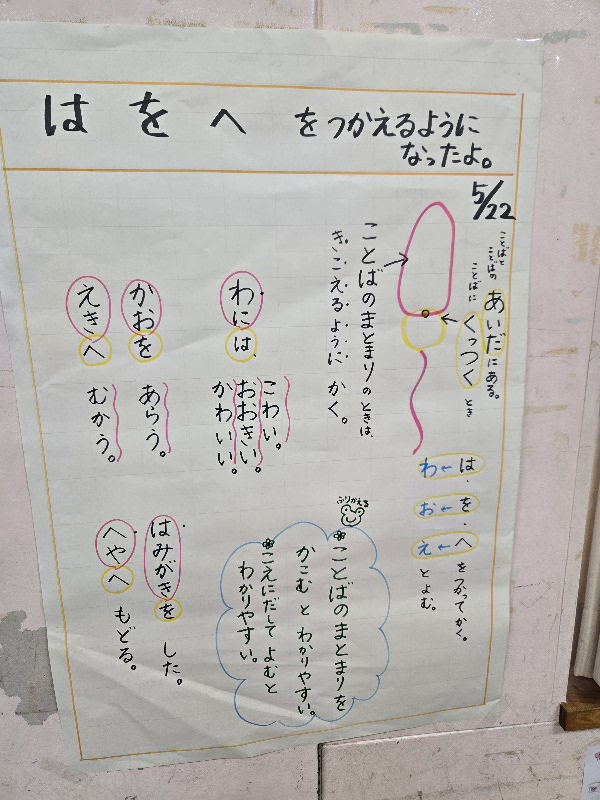 は を へ をつかえるように
なったよ。
5/22
ことばと
ことばの
あいだにある。
ことばに
くっつくとき
は←わ
を←お
へ←え
をつかってかく。
とよむ。
ことばのまとまりのときは、
きこえるようにかく。
わには、
こわい。
おおきい。
かわいい。
かおを
あらう。
えきへ
むかう。
ふりかえる
ことばのまとまりを
かこむとわかりやすい。
こえにだしてよむと
わかりやすい。
はみがきを
した。
へやへ
もどる。